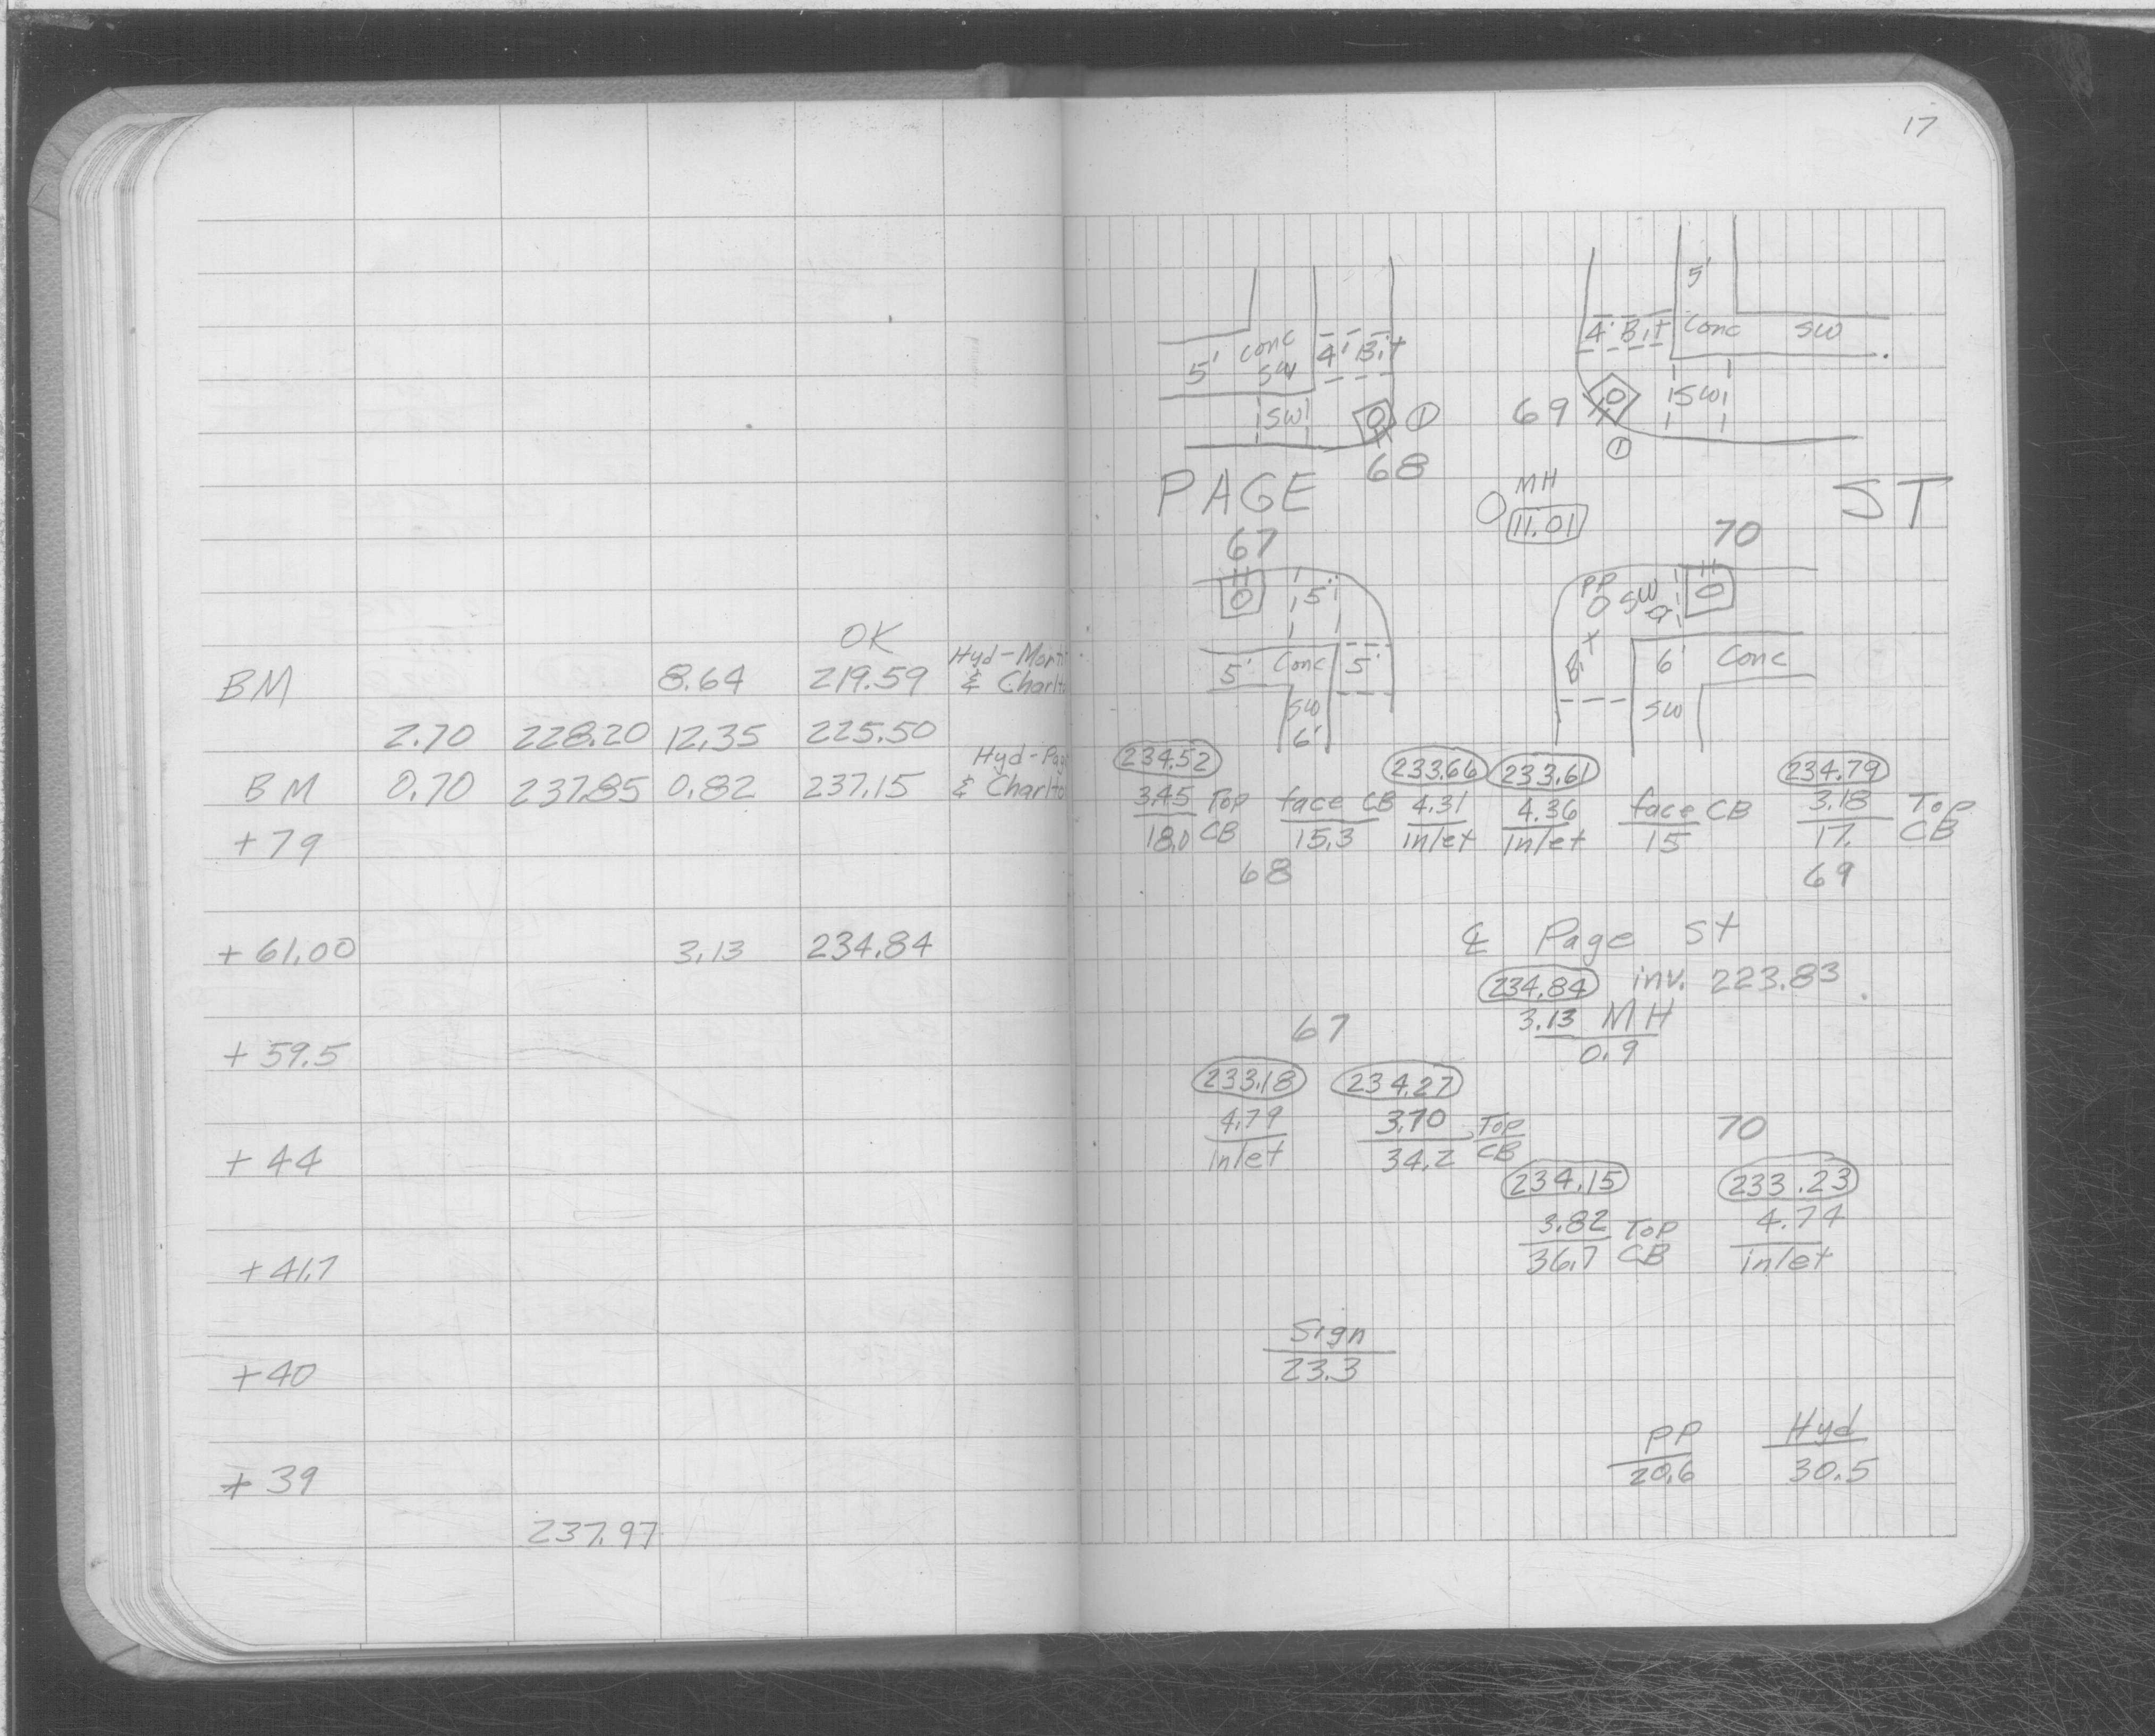 17
5'
5' Conc 4' Bit
SW
4' Bit Conc SW
SW 0 1
69 0 SW
1
68
PAGE MH ST
11.01
67 70
0 5'
PP SW 0
5' Conc 5'
Bit 6' Conc
SW
6'
SW
OK
BM 8.64 219.59 Hyd-
&
2.70 228.20 12.35 225.50
BM 0.70 237.85 0.82 237.15 Hyd-
&
+ 79
+ 61.00 3.13 234.84
+ 59.5
+ 44
+ 41.7
+ 40
+ 39
237.97
234.52 233.66 233.61 234.79
3.45 Top face CB 4.31 4.36 face CB 3.18 Top
18.0 CB 15.3 inlet inlet 15 17. CB
68 69
℄ Page St
234.84 inv. 223.83
67 3.13 MH
0.9
233.18 234.27
4.79 3.70 Top 70
inlet 34.2 CB
234.15 233.23
3.82 Top 4.74
36.7 CB inlet
Sign
23.3
PP Hyd
20.6 30.5